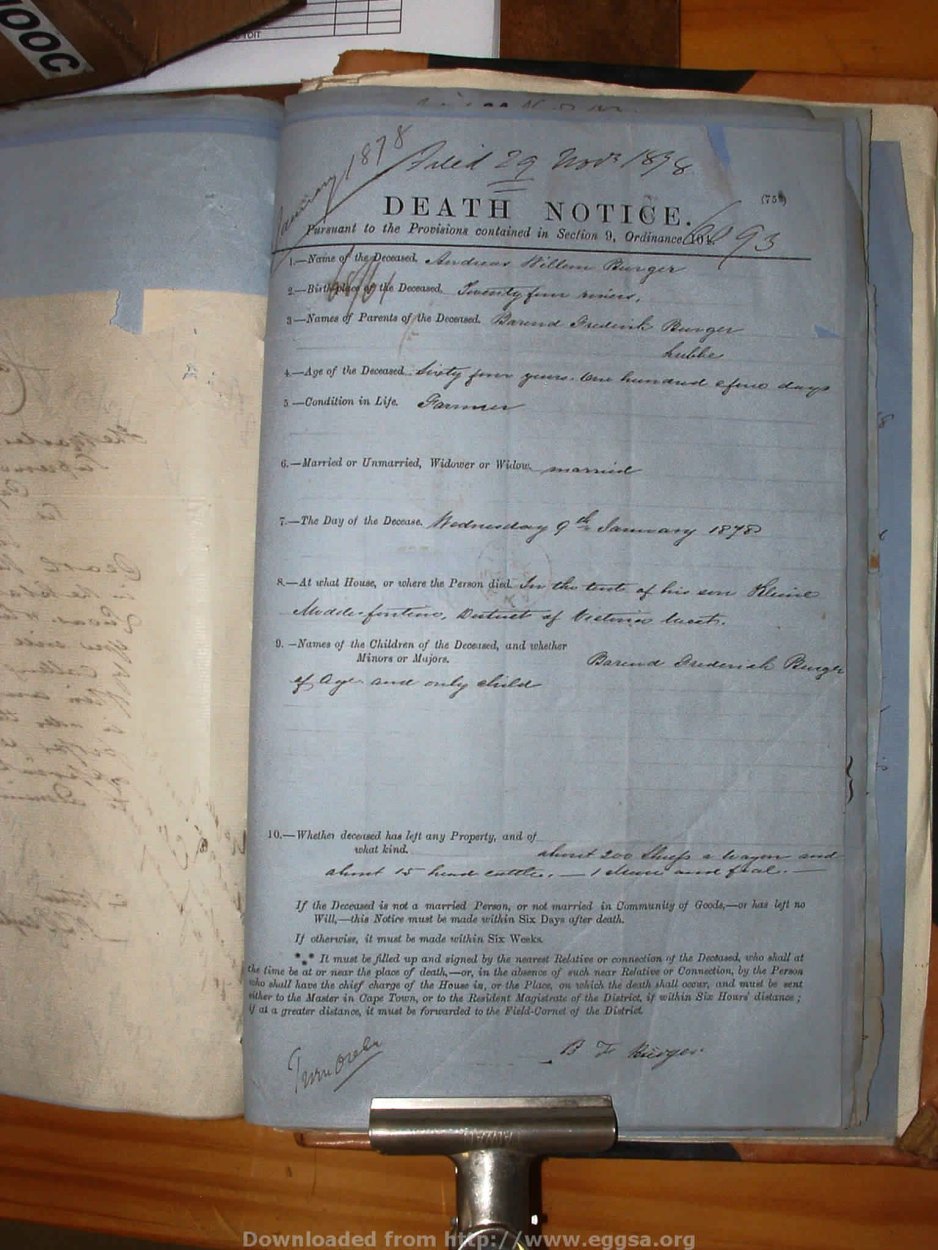 MOOC
January 1878
Filed 29 Novr 1878
(75*)
DEATH NOTICE.
Pursuant to the Provisions contained in Section 9, Ordinance 104.
93
1.—Name of the Deceased. Andreas Willem Burger
2.—Birthplace of the Deceased. Twenty four riviers.
3.—Names of Parents of the Deceased. Barend Frederick Burger
Lubbe
4.—Age of the Deceased. Sixty four years. One hundred & five days
5.—Condition in Life. Farmer
6.—Married or Unmarried, Widower or Widow. married
7.—The Day of the Decease. Wednesday 9th January 1878
8.—At what House, or where the Person died. In the tent of his son Kleine
Modderfontein, District of Victoria West.
9.—Names of the Children of the Deceased, and whether
Minors or Majors. Barend Frederick Burger
of Age and only child
10.—Whether deceased has left any Property, and of
what kind. about 200 Sheep a wagon and
about 15 head cattle. — 1 and foal. —
If the Deceased is not a married Person, or not married in Community of Goods,—or has left no
Will,—this Notice must be made within Six Days after death.
If otherwise, it must be made within Six Weeks.
*** It must be filled up and signed by the nearest Relative or connection of the Deceased, who shall at
the time be at or near the place of death,—or, in the absence of such near Relative or Connection, by the Person
who shall have the chief charge of the House in, or the Place, on which the death shall occur, and must be sent
either to the Master in Cape Town, or to the Resident Magistrate of the District, if within Six Hours' distance;
if at a greater distance, it must be forwarded to the Field-Cornet of the District.
Turn over
B F Burger
Downloaded from http://www.eggsa.org